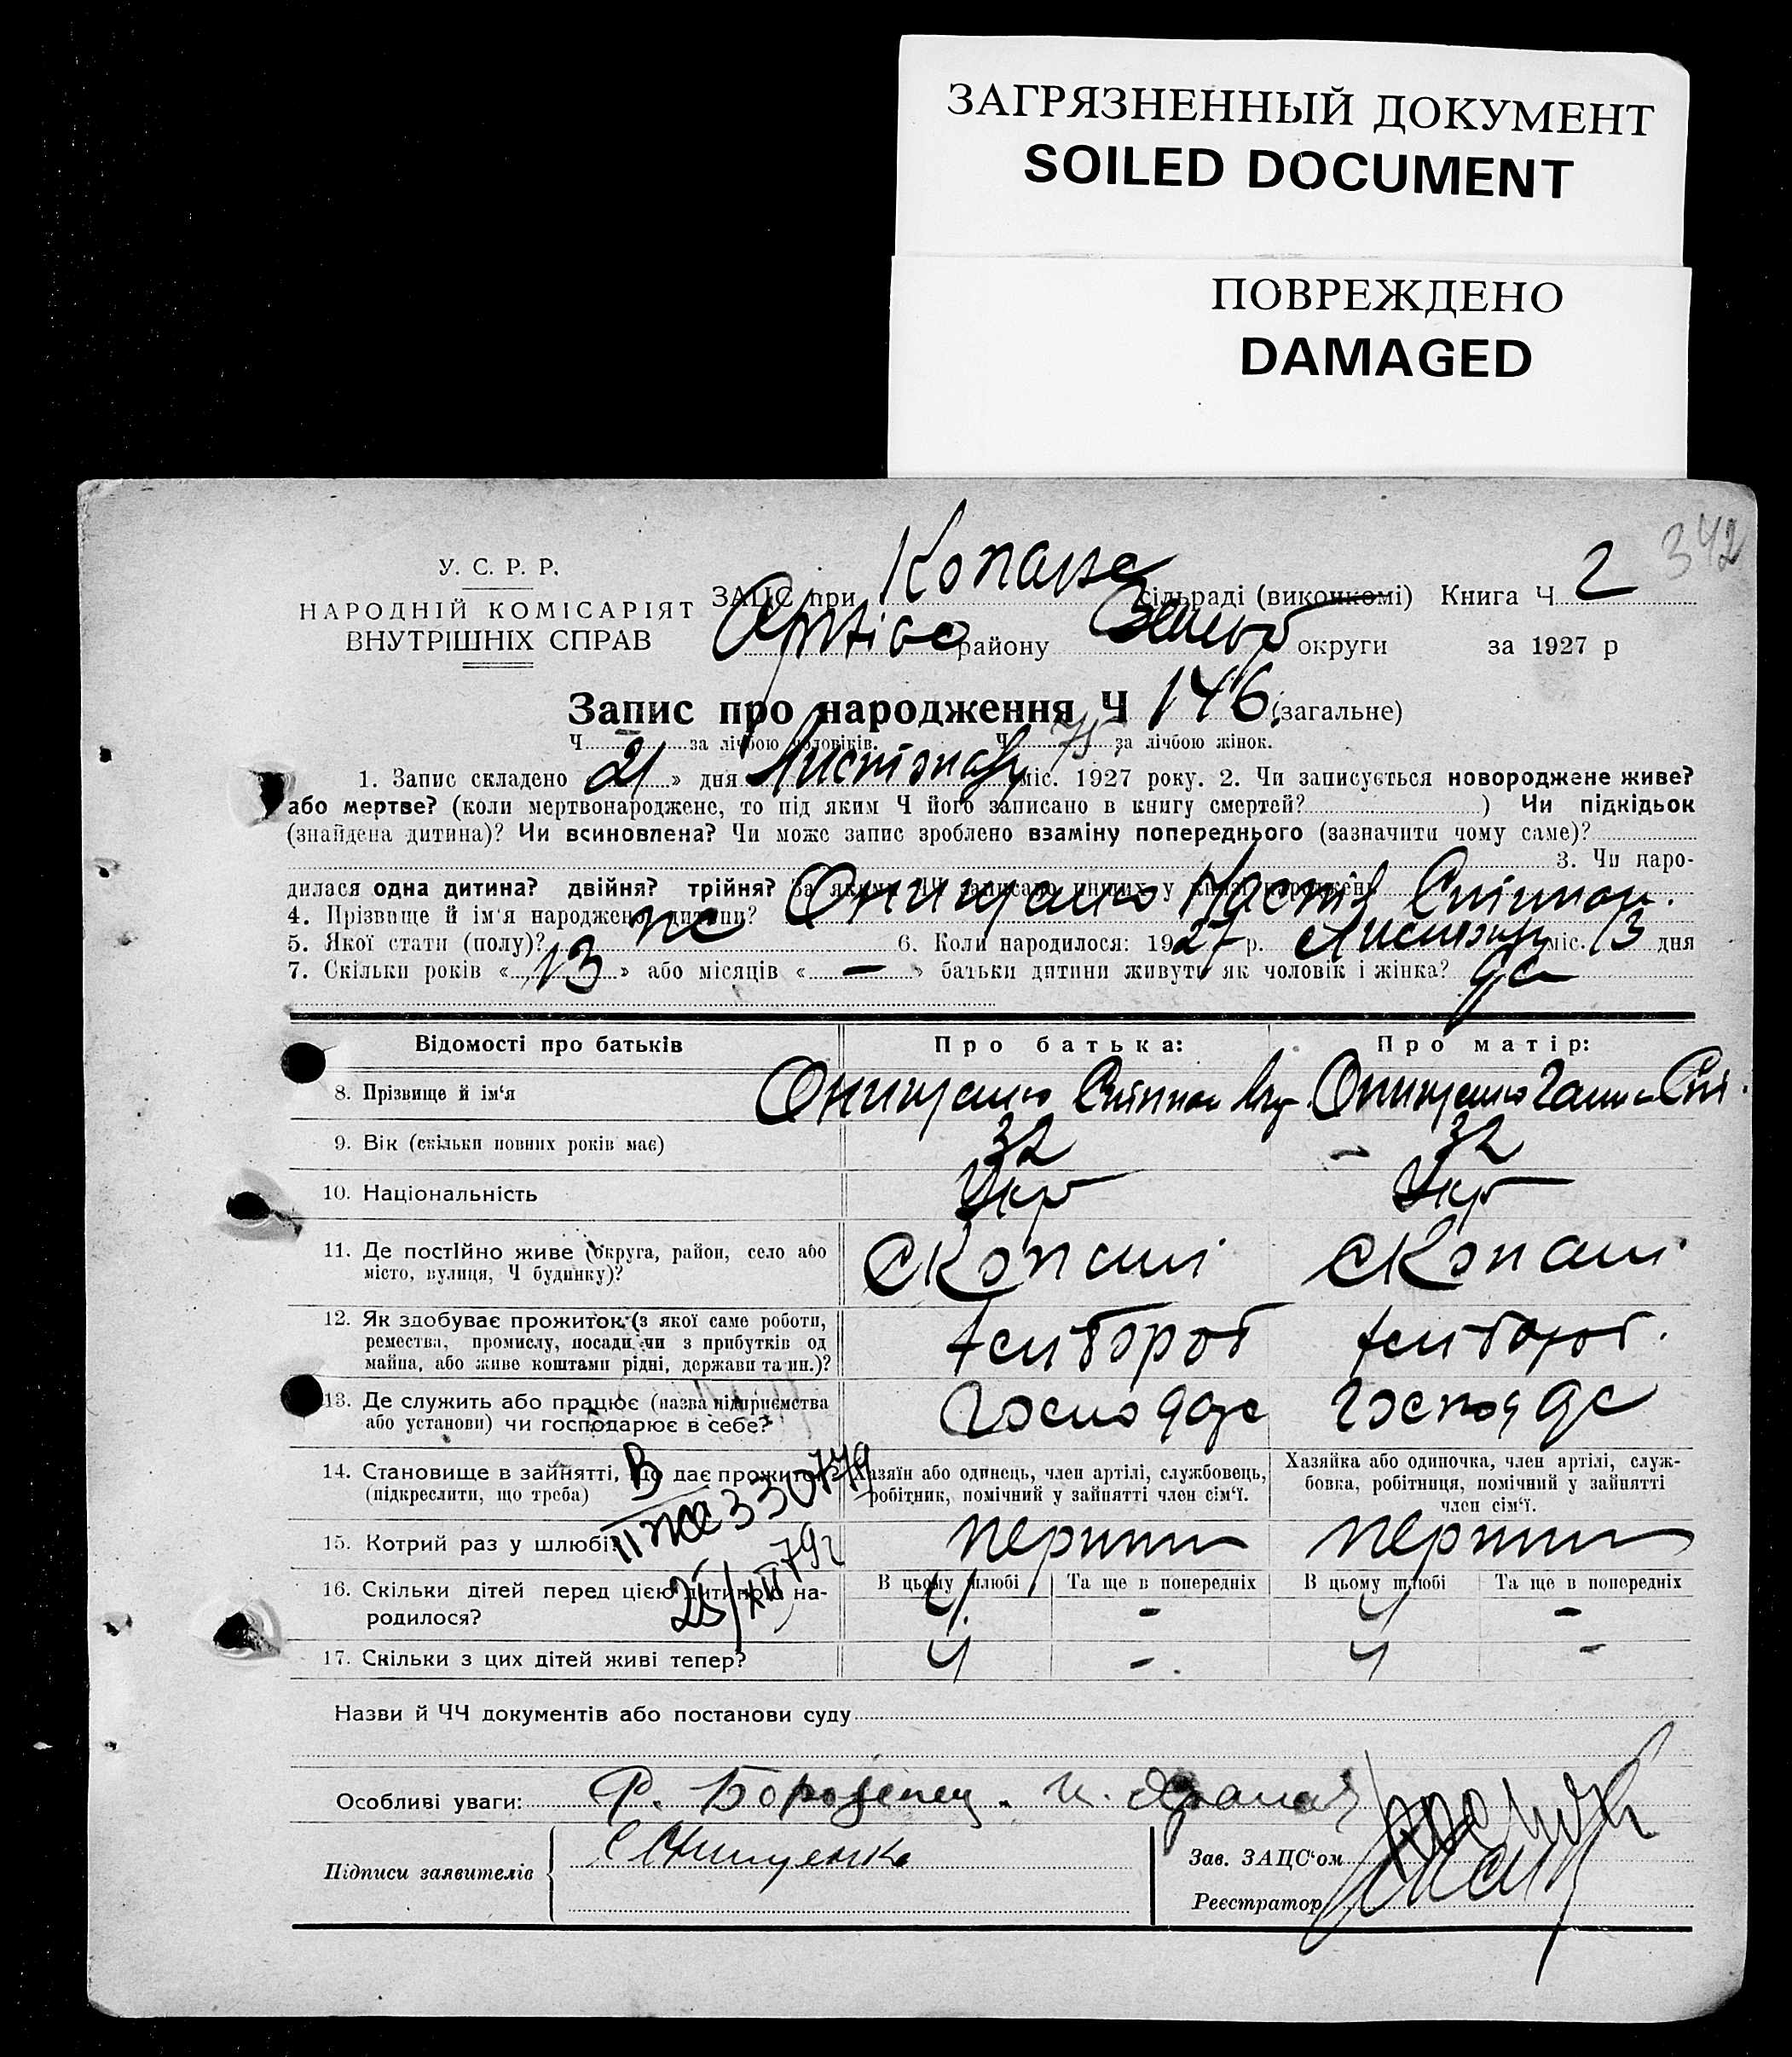 ЗАГРЯЗНЕННЫЙ ДОКУМЕНТ
SOILED DOCUMENT
ПОВРЕЖДЕНО
DAMAGED
342
У. С. Р. Р.
НАРОДНІЙ КОМІСАРІЯТ
ВНУТРІШНІХ СПРАВ
ЗАЦС при сільраді (виконкомі) Книга Ч 2
району округи за 1927 р
Запис про народження Ч 146 (загальне)
Ч за лічбою чоловіків. Ч 75 за лічбою жінок.
1. Запис складено « 21 » дня Листопаду міс. 1927 року. 2. Чи записується новороджене живе?
або мертве? (коли мертвонароджене, то під яким Ч його записано в книгу смертей? ) Чи підкідьок
(знайдена дитина)? Чи всиновлена? Чи може запис зроблено взаміну попереднього (зазначити чому саме)?
3. Чи наро-
дилася одна дитина? двійня? трійня? За якими ЧЧ записано инших у книзі народжень
4. Прізвище й ім'я народженої дитини? Онищенко Настя Степан.
5. Якої стати (полу)? же 6. Коли народилося: 1927 р. Листопад міс. 13 дня
7. Скільки років « 13 » або місяців « — » батьки дитини живуть як чоловік і жінка? да
Відомості про батьків Про батька: Про матір:
8. Прізвище й ім'я Онищенко Степан Онищенко Ганна
9. Вік (скільки повних років має) 32 32
10. Національність Укр Укр
11. Де постійно живе (округа, район, село або
місто, вулиця, Ч будинку)? с Копані с Копані
12. Як здобуває прожиток (з якої саме роботи,
ремества, промислу, посади чи з прибутків од
майна, або живе коштами рідні, держави та ин.)? хлібороб хлібороб.
13. Де служить або працює (назва підприємства
або установи) чи господарює в себе?
14. Становище в зайнятті, що дає прожиток?
(підкреслити, що треба)
Хазяїн або одинець, член артілі, службовець,
робітник, помічний у зайнятті член сім'ї.
Хазяйка або одиночка, член артілі, служ-
бовка, робітниця, помічний у зайнятті
член сім'ї.
330779
25/XII 79г
15. Котрий раз у шлюбі? перший перший
16. Скільки дітей перед цією дитиною на-
родилося?
В цьому шлюбі Та ще в попередніх В цьому шлюбі Та ще в попередніх
4 - 4 -
17. Скільки з цих дітей живі тепер? 4 - 4 -
Назви й ЧЧ документів або постанови суду
Особливі уваги:
Підписи заявителів Онищенко
Зав. ЗАЦС'ом
Реєстратор